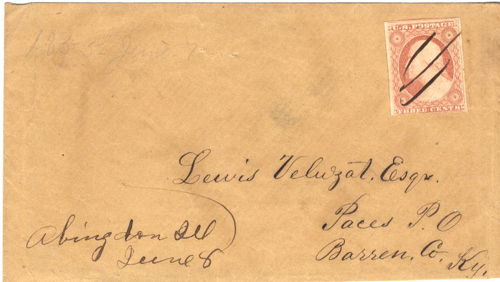 U.S. POSTAGE
THREE CENTS
Lewis Veluzat, Esqr.
Paces P.O
Barren, Co.
Ky.
Abingdon Ill
June 8